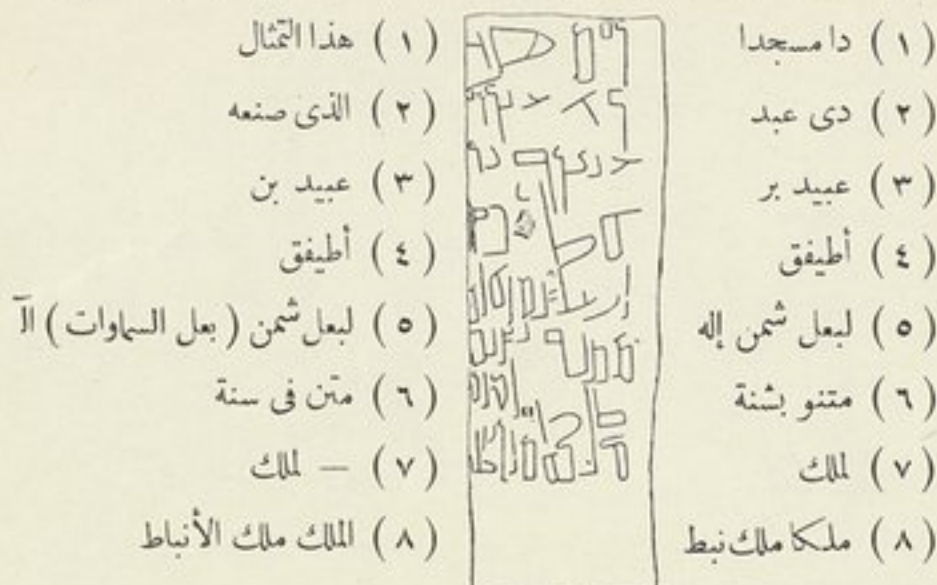 (١) دا مسجدا
(٢) دى عبد
(٣) عبيد بر
(٤) أطيفق
(٥) لبعل شمن إله
(٦) متنو بشنة
(٧) لملك
(٨) ملكا ملك نبط
(١) هذا التمثال
(٢) الذى صنعه
(٣) عبيد بن
(٤) أطيفق
(٥) لبعل شمن (بعل السماوات) الآ
(٦) متن فى سنة
(٧) — لملك
(٨) الملك ملك الأنباط